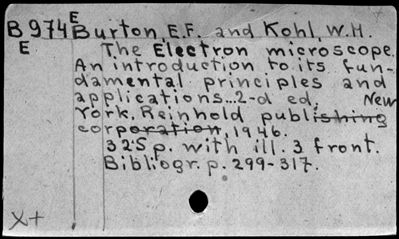 B974 E Burton, E.F. and Kohl, W.H.
E The Electron microscope.
An introduction to its fun-
damental principles and
applications...2-d ed. New
York, Reinhold publishing
corporation, 1946.
325 p. with ill. 3 front.
Bibliogr. p. 299-317.
X+